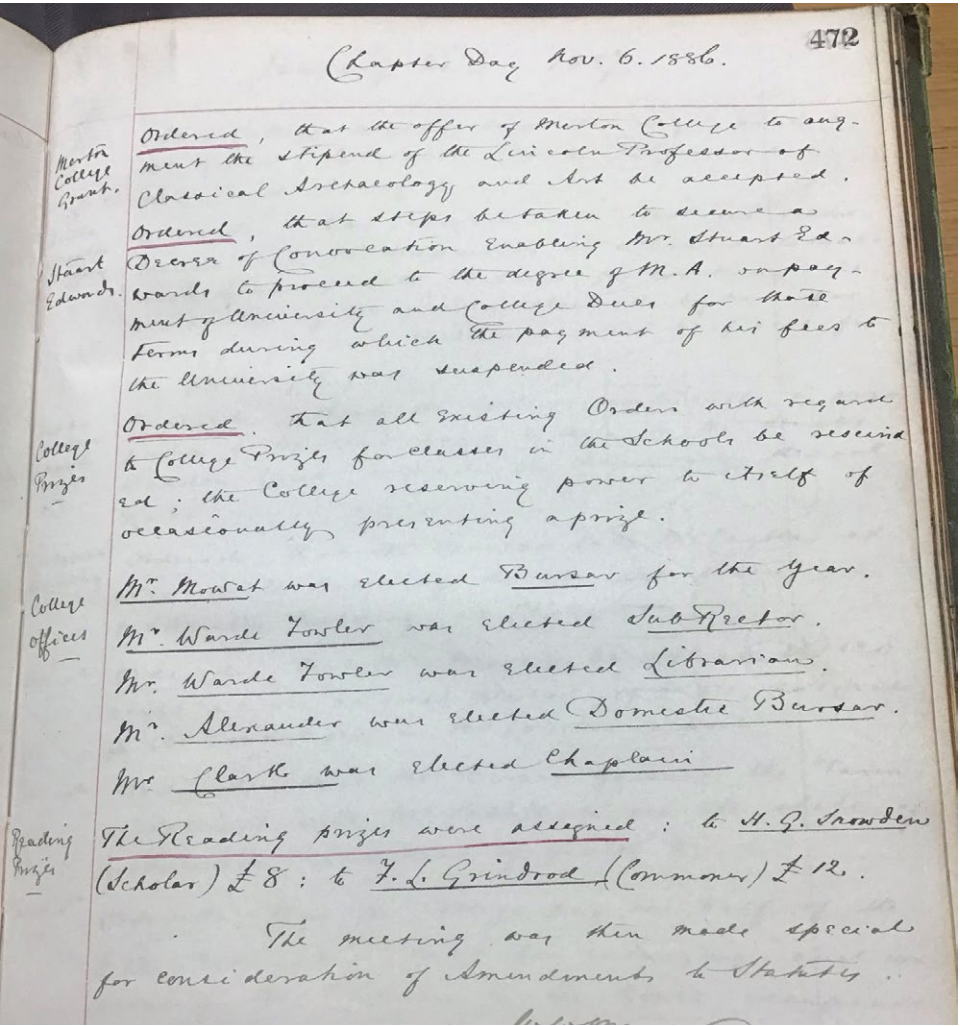 472
Chapter Day Nov. 6. 1886.
Merton
College
Grant.
Ordered, that the offer of Merton College to aug-
ment the stipend of the Lincoln Professor of
Classical Archaeology and Art be accepted.
Stuart
Edwards.
Ordered, that steps be taken to secure a
Decree of Convocation enabling Mr. Stuart Ed-
wards to proceed to the degree of M.A. on pay-
ment of University and College Dues for those
terms during which the payment of his fees to
the University was suspended.
College
Prizes
Ordered, that all existing Orders with regard
to College Prizes for classes in the Schools be rescind
ed; the College reserving power to itself of
occasionally presenting a prize.
College
offices
Mr. Mowat was elected Bursar for the year.
Mr. Warde Fowler was elected SubRector.
Mr. Warde Fowler was elected Librarian.
Mr. Alexander was elected Domestic Bursar.
Mr. Clark was elected Chaplain
Reading
Prizes
The Reading prizes were assigned: to H. G. Snowden
(Scholar) £8: to F. L. Grindrod (Commoner) £12.
The meeting was then made special
for consideration of Amendments to Statutes.